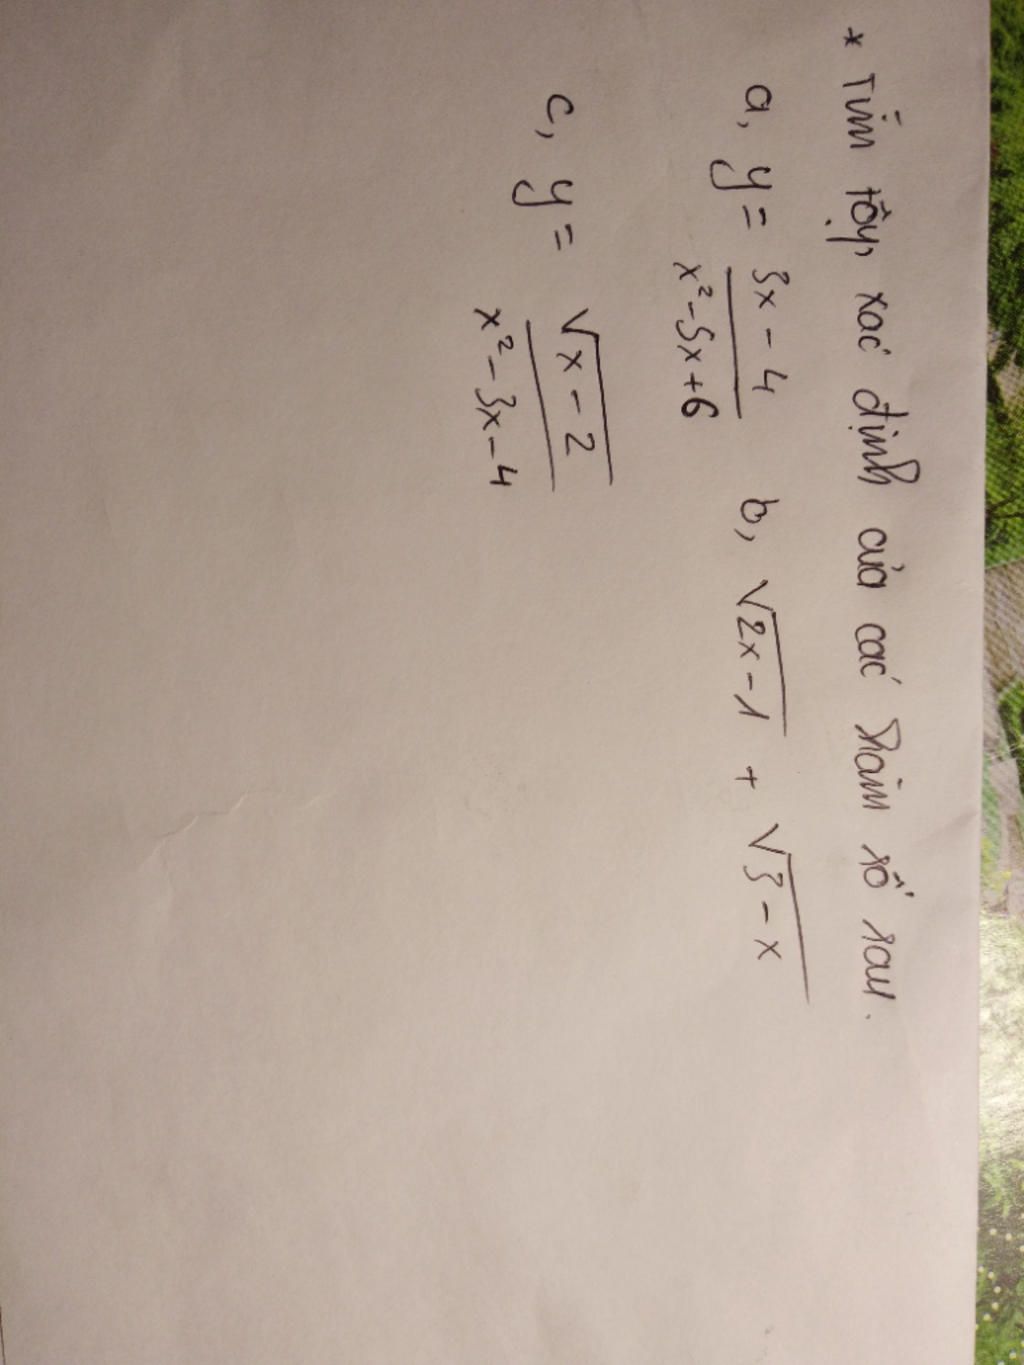 * Tìm tập xác định của các hàm số sau.
a, y = \frac{3x - 4}{x² - 5x + 6} b, √(2x - 1) + √(3 - x)
c, y = \frac{√(x - 2)}{x² - 3x - 4}